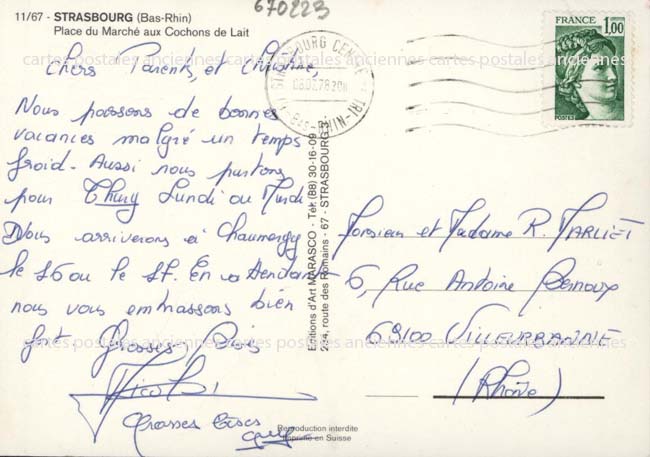 11/67 - STRASBOURG (Bas-Rhin)
Place du Marché aux Cochons de Lait
670223
Chers Parents, et Christine,
Nous passons de bonnes
vacances malgré un temps
froid. Aussi nous partons
pour Thury Lundi ou Mardi
Nous arriverons à Chaumergy
le 16 ou le 17. En attendant
nous vous embrassons bien
fort Grosses Bises
Nicole
Grosses bises
STRASBOURG CENTRE TRI
BAS-RHIN
FRANCE
1,00
POSTES
Editions d'Art MARASCO - Tél. (88) 30-16-09
224, route des Romains - 67 - STRASBOURG 3
Monsieur et Madame R. MARLIET
6, Rue Antoine Bernoux
69100 VILLEURBANNE
(Rhône)
Reproduction interdite
Imprimé en Suisse
cartes postales anciennes cartes postales anciennes cartes postales anciennes